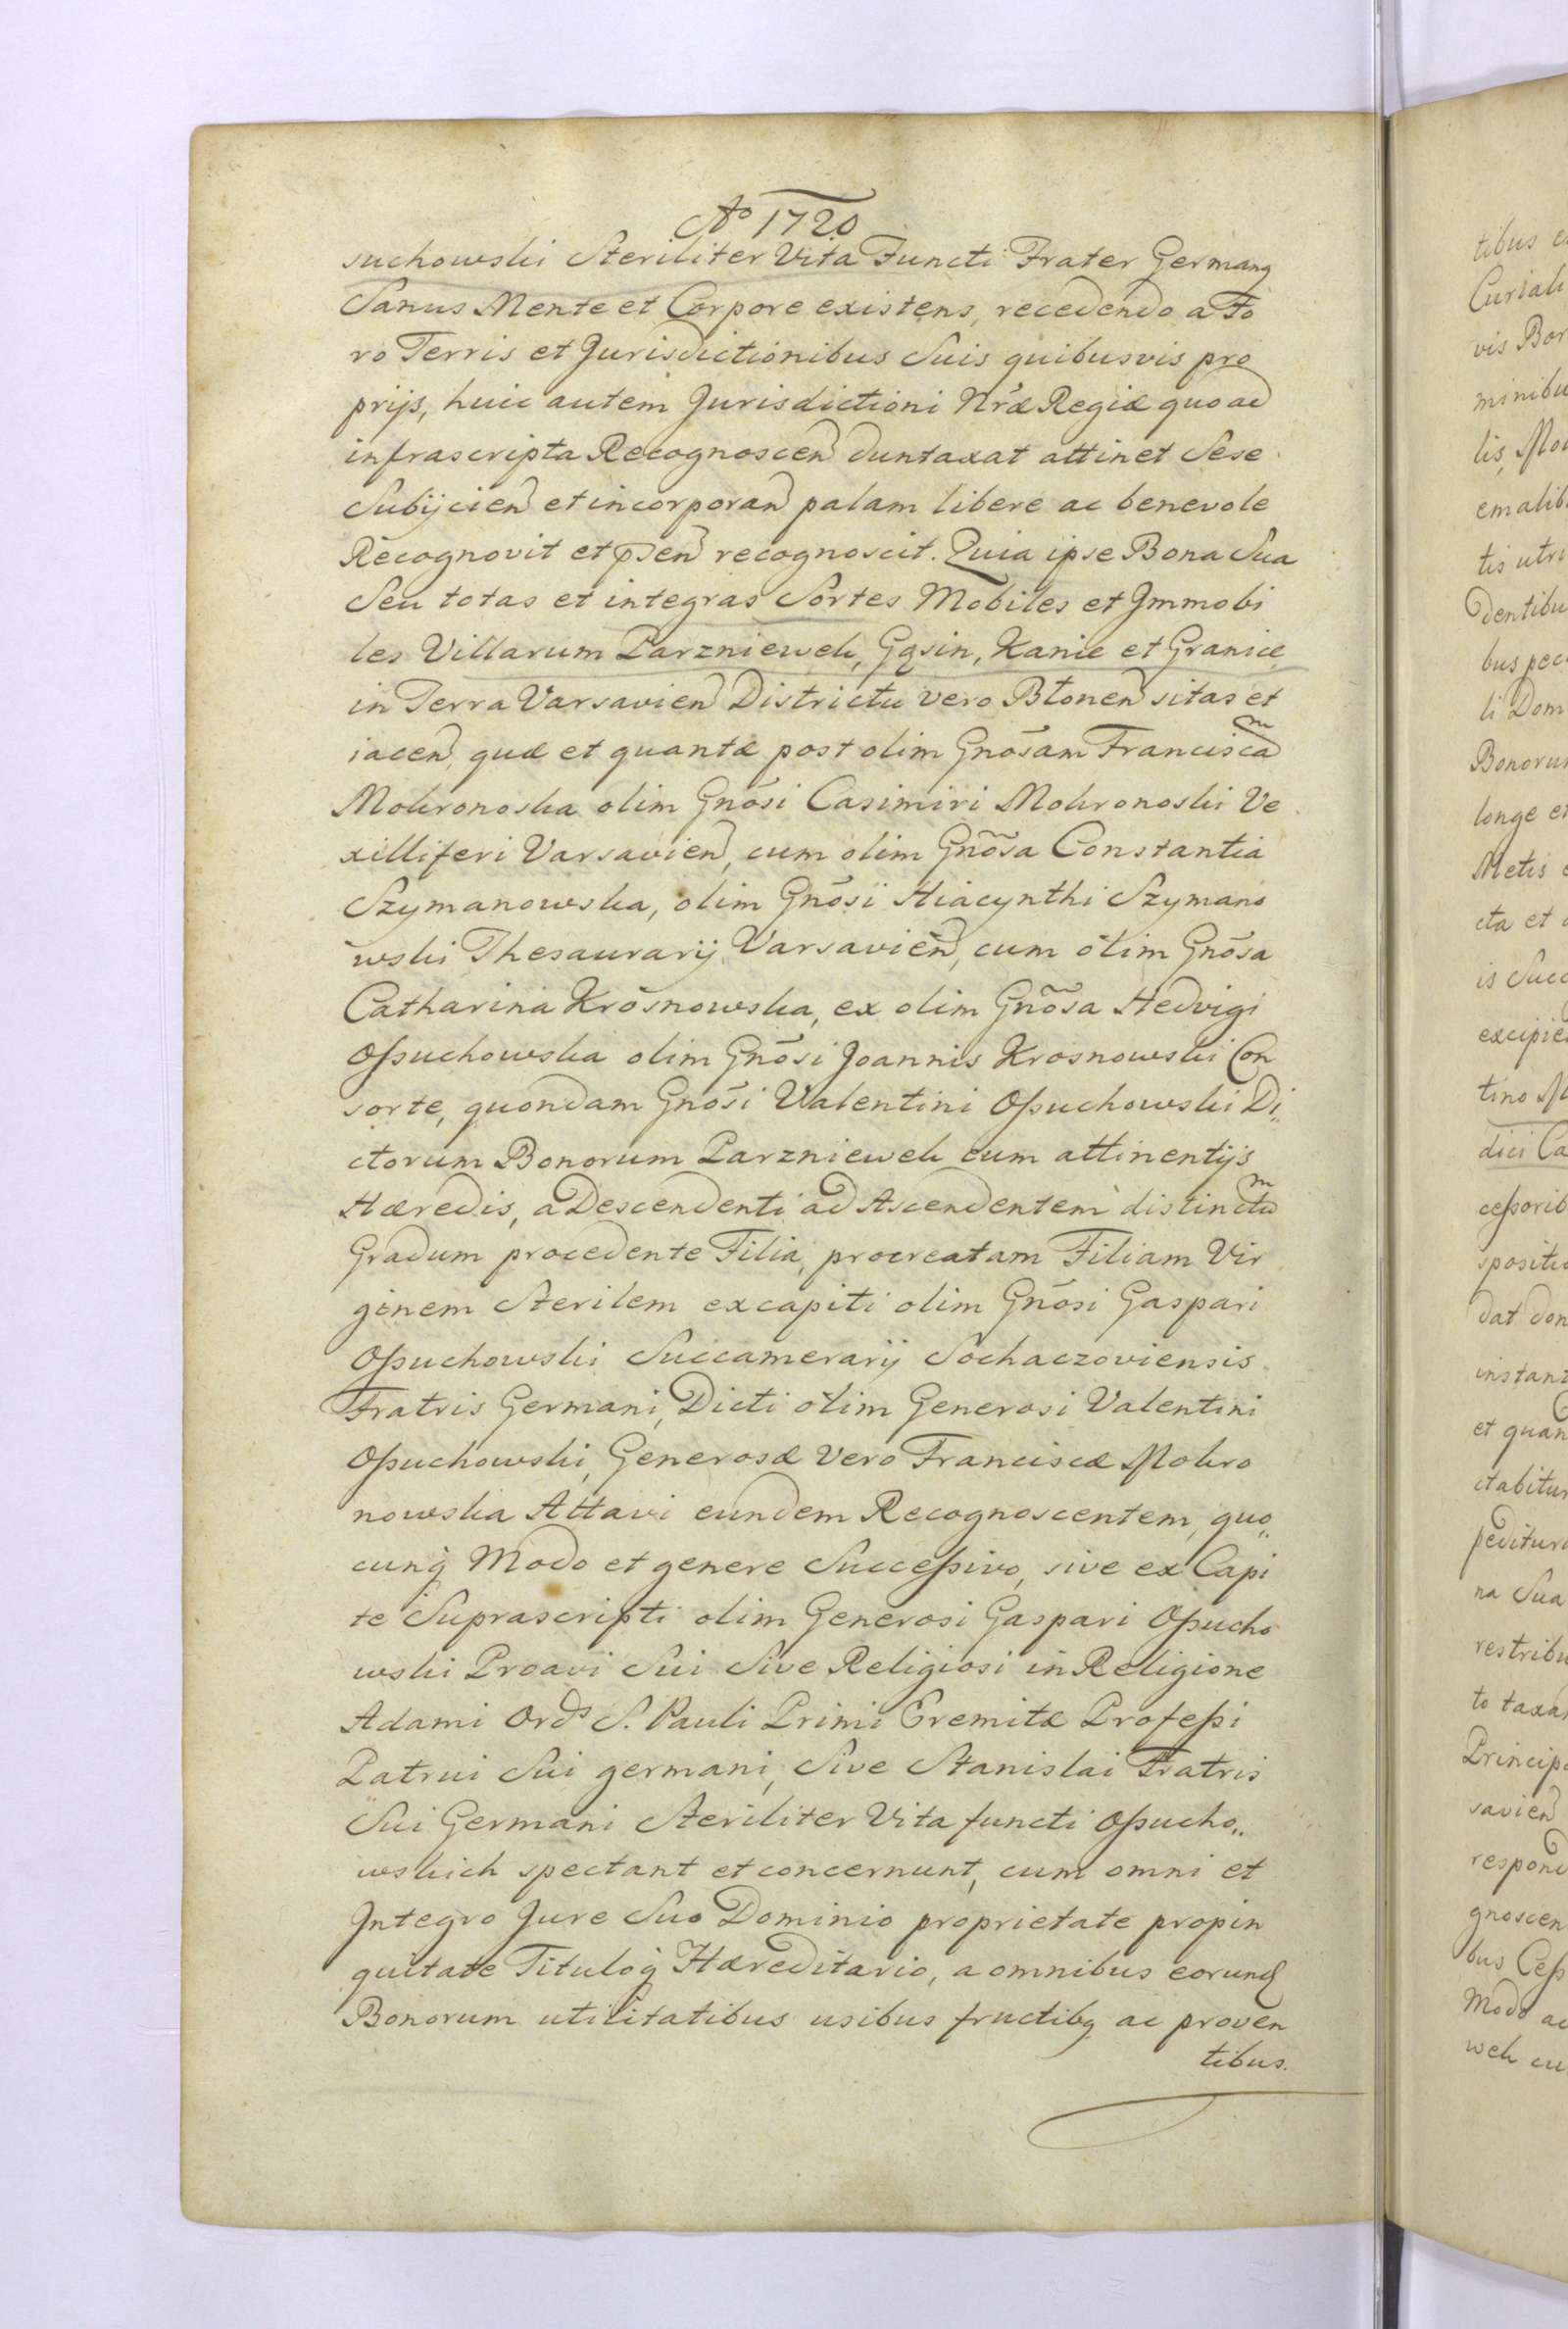 Aº 1720
suchowski Steriliter Vita Functi Frater Germanꝯ
Sanus Mente et Corpore existens, recedendo a Fo
ro Terris et Jurisdictionibus Suis quibusvis pro
prijs, huic autem Jurisdictioni Nr̃æ Regiæ quoad
infrascripta Recognoscen̄ duntaxat attinet Sese
Subijcien̄ et incorporan̄ palam libere ac benevole
Recognovit et p̄sen̄ recognoscit. Quia ipse Bona Sua
Seu totas et integras Sortes Mobiles et Jmmobi
les Villarum Parzniewek, Gąsin, Kanie et Granice
in Terra Varsavien̄ Districtu vero Błonen̄ sitas et
iacen̄, quæ et quantæ post olim Gnõsam Franciscam
Mokronoska olim Gnõsi Casimiri Mokronoski Ve
xilliferi Varsavien̄, cum olim Gnõsa Constantia
Szymanowska, olim Gnõsi Hiacynthi Szymano
wski Thesaurarij Varsavien̄, cum olim Gnõsa
Catharina Krosnowska, ex olim Gnõsa Hedvigi
Ossuchowska olim Gnõsi Joannis Krosnowski Con
sorte, quondam Gnõsi Valentini Ossuchowski Di„
ctorum Bonorum Parzniewek cum attinentijs
Hæredis, a Descendenti ad Ascendentem distinctum
Gradum procedente Filia, procreatam Filiam Vir
ginem Sterilem ex capiti olim Gnõsi Gaspari
Ossuchowski Succamerarij Sochaczoviensis
Fratris Germani, Dicti olim Generosi Valentini
Ossuchowski, Generosæ vero Franciscæ Mokro
nowska Attavi eundem Recognoscentem, quo„
cunq̃ Modo et genere Successivo, sive ex Capi
te Suprascripti olim Generosi Gaspari Ossucho
wski Proavi Sui Sive Religiosi in Religione
Adami Ordˢ S. Pauli Primi Eremitæ Professi
Patrui Sui germani, Sive Stanislai Fratris
Sui Germani Steriliter Vita functi Ossucho„
wskich spectant et concernunt, cum omni et
Jntegro Jure Suo Dominio proprietate propin
quitate Tituloq̃ Hæreditario, a omnibus eorund
Bonorum utilitatibus usibus fructibꝯ ac proven
tibus.
tibus
Curiali
vis Bor
minibu
lis, Mo
emalib
tis utri
dentibu
bus pec
li Dom
Bonoru
longe e
Metis
cta et
is Succ
excipie
tino M
dici Ca
cessorib
spositi
dat don
instant
et quan
ctabitur
peditur
na Sua
restribu
to taxa
Principa
savien̄
respond
gnoscen
bus Cess
Modo ac
wek cu